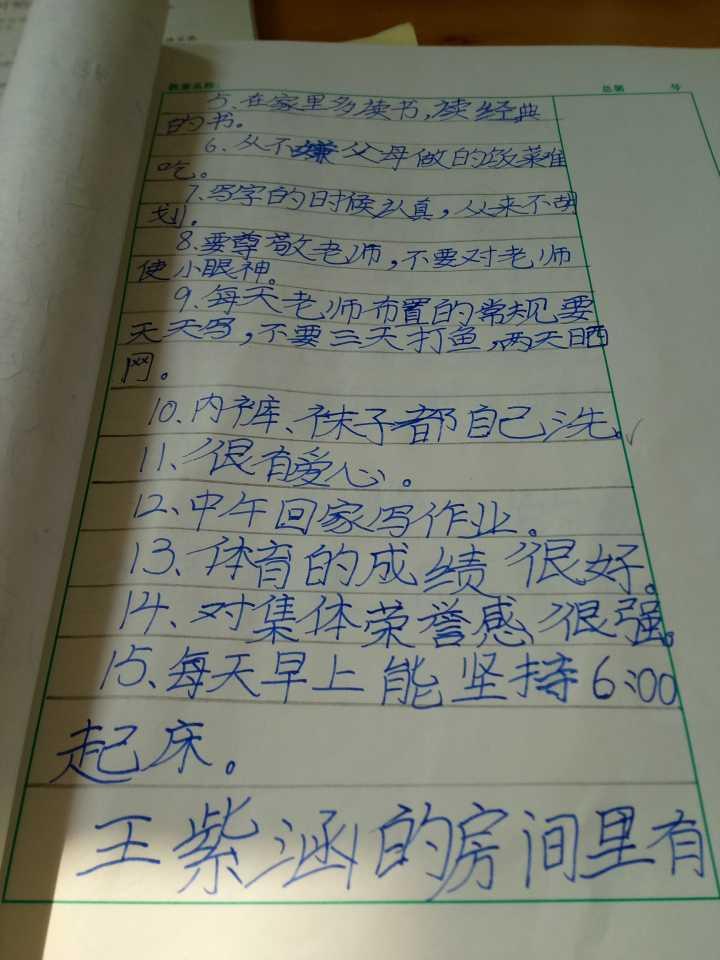 教案名称: 总第 号
5、在家里多读书,读经典
的书。
6、从不嫌父母做的饭菜难
吃。
7、写字的时候认真,从来不胡
划。
8、要尊敬老师,不要对老师
使小眼神。
9、每天老师布置的常规要
天天写,不要三天打鱼,两天晒
网。
10、内裤、袜子都自己洗。
11、很有爱心。
12、中午回家写作业。
13、体育的成绩很好。
14、对集体荣誉感很强。
15、每天早上能坚持6:00
起床。
王紫涵的房间里有